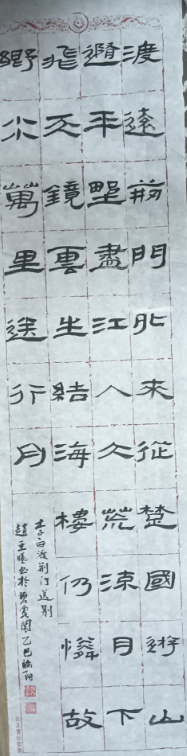 渡遠荊門外來從楚國遊山
隨平野盡江入大荒流月下
飛天鏡雲生結海樓仍憐故
鄉水萬里送行舟
李白渡荆门送别
趙 书於 閣乙巳